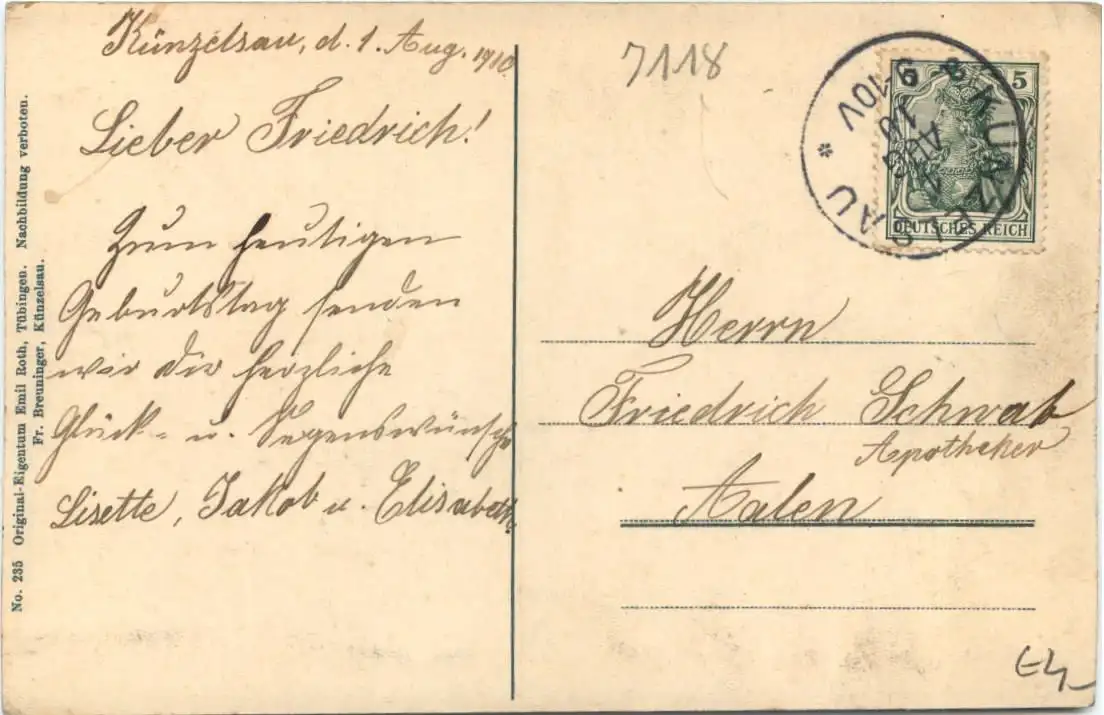 Künzelsau, d. 1. Aug. 1910.
Lieber Friedrich!
Zum heutigen
Geburtstag senden
wir dir herzliche
Glück- u. Segenswünsche
Lisette, Jakob u. Elisabeth.
No. 235 Original-Eigentum Emil Roth, Tübingen. Nachbildung verboten.
Fr. Breuninger, Künzelsau.
7118
KÜNZELSAU
AUG
10
5 5
DEUTSCHES REICH
Herrn
Friedrich Schwab
Apotheker
Aalen